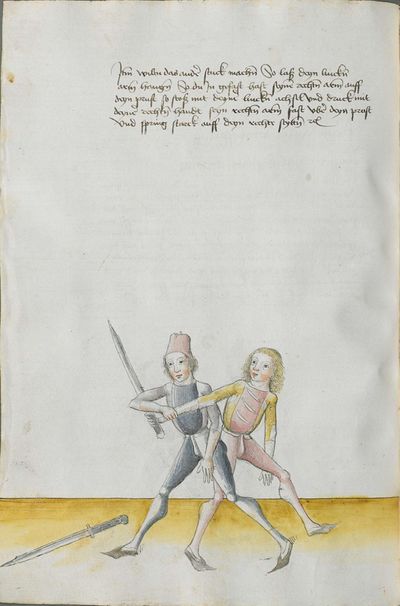 Itm wiltu das ander stuck machn So laß deyn lincken
arm hengen So du In gefast hast seyne rechtn arm auff
deyn prust so stoß mit deyne linckn achsel und druck mit
deyne rechtn handt seyn rechtn arm fast ubr deyn prust
und spring starck auff deyn rechte seytn